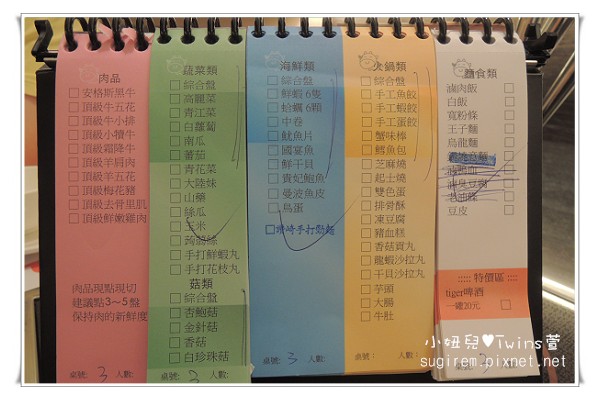 肉品
安格斯黑牛
頂級牛五花
頂級牛小排
頂級小犢牛
頂級霜降牛
頂級羊肩肉
頂級羊五花
頂級梅花豬
頂級去骨里肌
頂級鮮嫩雞肉
肉品現點現切
建議點3～5盤
保持肉的新鮮度
桌號: 3 人數:
蔬菜類
綜合盤
高麗菜
青江菜
白蘿蔔
南瓜
蕃茄
青花菜
大陸妹
山藥
絲瓜
玉米
蒟蒻絲
手打鮮蝦丸
手打花枝丸
菇類
綜合盤
杏鮑菇
金針菇
香菇
白珍珠菇
桌號: 3 人數:
海鮮類
綜合盤
鮮蝦 6隻
蛤蠣 6顆
中卷
魷魚片
國宴魚
鮮干貝
貴妃鮑魚
曼波魚皮
鳥蛋
手打
桌號: 3 人數:
火鍋類
綜合盤
手工魚餃
手工蝦餃
手工蛋餃
蟹味棒
鱈魚包
芝麻燒
起士燒
雙色蛋
排骨酥
凍豆腐
豬血糕
香菇貢丸
龍蝦沙拉丸
干貝沙拉丸
芋頭
大腸
牛肚
桌號: 人數:
麵食類
滷肉飯
白飯
寬粉條
王子麵
烏龍麵
豆皮
特價區
tiger啤酒
一罐20元
桌號: 3 人數:
小妞兒♥Twins萱
sugirem.pixnet.net